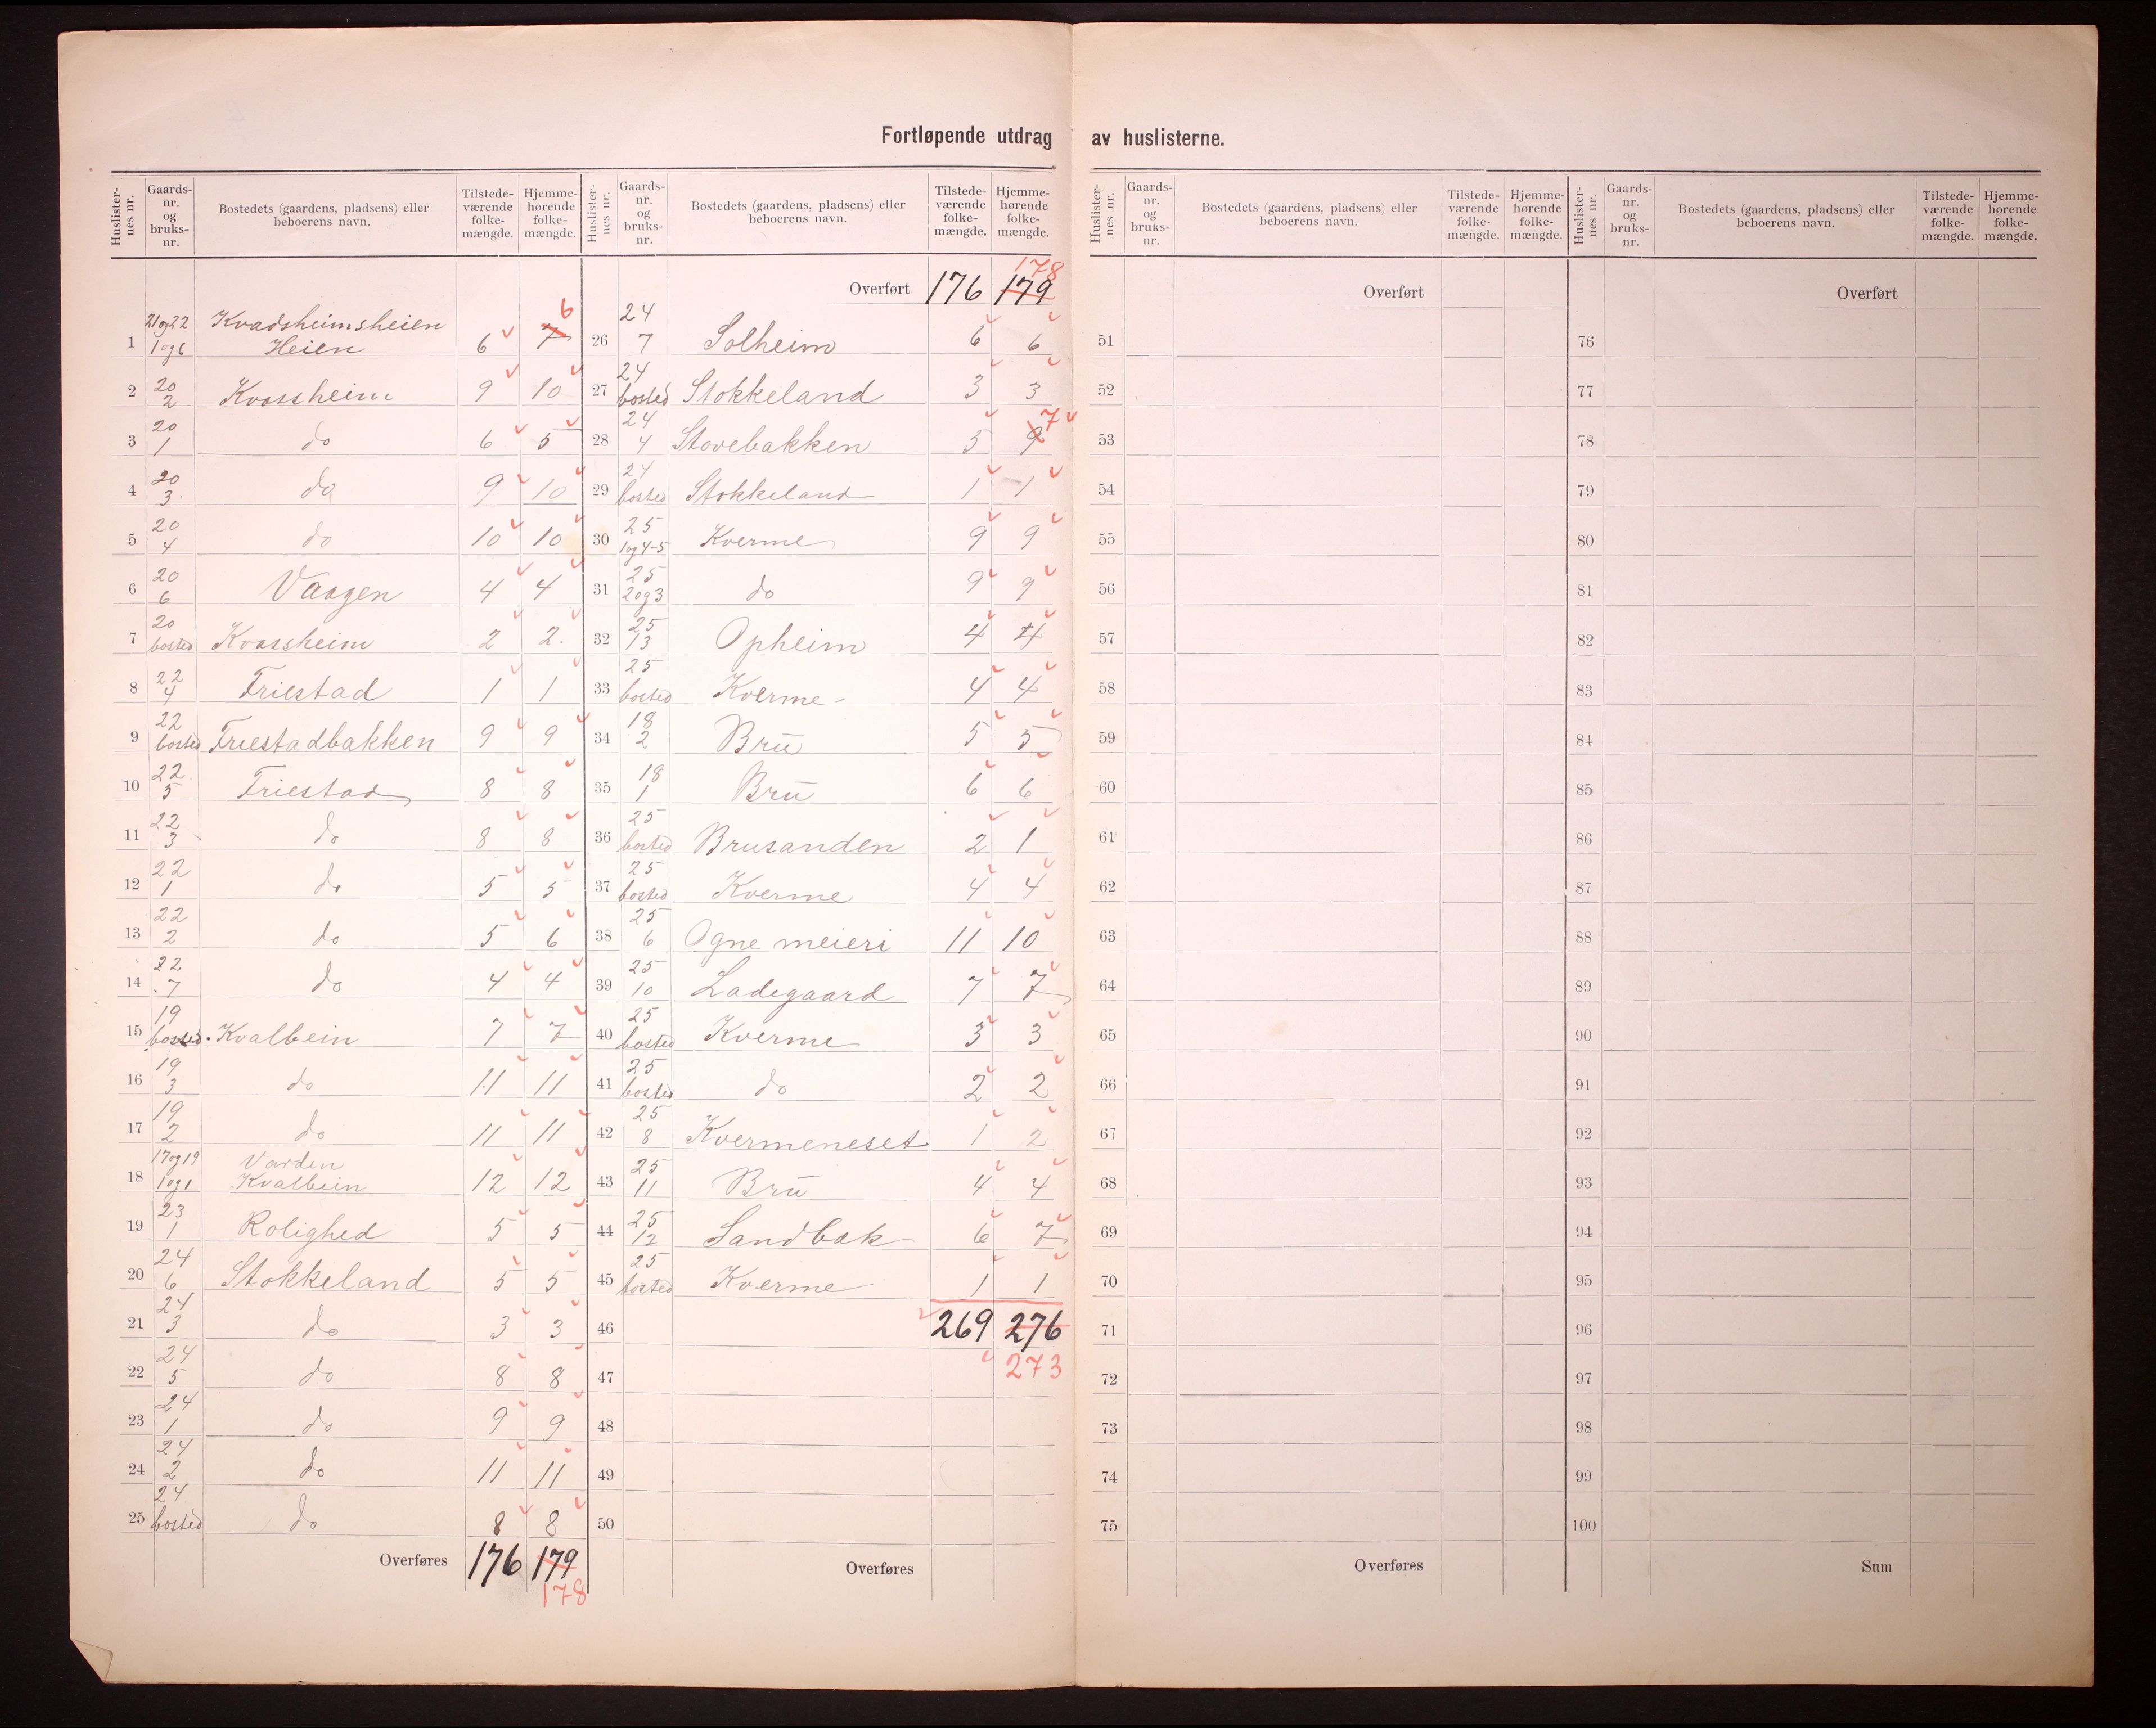 Fortløpende utdrag av huslisterne.
Huslisternes nr. Gaards-nr. og bruks-nr. Bostedets (gaardens, pladsens) eller beboerens navn. Tilstedeværende folkemængde. Hjemmehørende folkemængde.
21og22 Kvadsheimsheien 6
1 1og6 Heien 6 7
2 20 2 Kvassheim 9 10
3 20 1 do 6 5
4 20 3 do 9 10
5 20 4 do 10 10
6 20 6 Vaagen 4 4
7 20 bosted Kvassheim 2 2.
8 22 4 Friestad 1 1
9 22 bosted Friestadbakken 9 9
10 22 5 Friestad 8 8
11 22 3 do 8 8
12 22 1 do 5 5
13 22 2 do 5 6
14 22 7 do 4 4
15 19 bosted Kvalbein 7 7
16 19 3 do 11 11
17 19 2 do 11 11
17og19 Varden
18 1og1 Kvalbein 12 12
19 23 1 Rolighed 5 5
20 24 6 Stokkeland 5 5
21 24 3 do 3 3
22 24 5 do 8 8
23 24 1 do 9 9
24 24 2 do 11 11
25 24 bosted do 8 8
Overføres 176 179
178
Huslisternes nr. Gaards-nr. og bruks-nr. Bostedets (gaardens, pladsens) eller beboerens navn. Tilstedeværende folkemængde. Hjemmehørende folkemængde.
178
Overført 176 179
26 24 7 Solheim 6 6
27 24 bosted Stokkeland 3 3
28 24 4 Stovebakken 5 9 7
29 24 bosted Stokkeland 1 1
30 25 1og4-5 Kverme 9 9
31 25 2og3 do 9 9
32 25 13 Opheim 4 4
33 25 bosted Kverme 4 4
34 18 2 Brū 5 5
35 18 1 Brū 6 6
36 25 bosted Brusanden 2 1
37 25 bosted Kverme 4 4
38 25 6 Ogne meieri 11 10
39 25 10 Ladegaard 7 7
40 25 bosted Kverme 3 3
41 25 bosted do 2 2
42 25 8 Kvermeneset 1 2
43 25 11 Brū 4 4
44 25 12 Sandbak 6 7
45 25 bosted Kverme 1 1
46 269 276
47 273
48
49
50
Overføres
Huslisternes nr. Gaards-nr. og bruks-nr. Bostedets (gaardens, pladsens) eller beboerens navn. Tilstedeværende folkemængde. Hjemmehørende folkemængde.
Overført
51
52
53
54
55
56
57
58
59
60
61
62
63
64
65
66
67
68
69
70
71
72
73
74
75
Overføres
Huslisternes nr. Gaards-nr. og bruks-nr. Bostedets (gaardens, pladsens) eller beboerens navn. Tilstedeværende folkemængde. Hjemmehørende folkemængde.
Overført
76
77
78
79
80
81
82
83
84
85
86
87
88
89
90
91
92
93
94
95
96
97
98
99
100
Sum